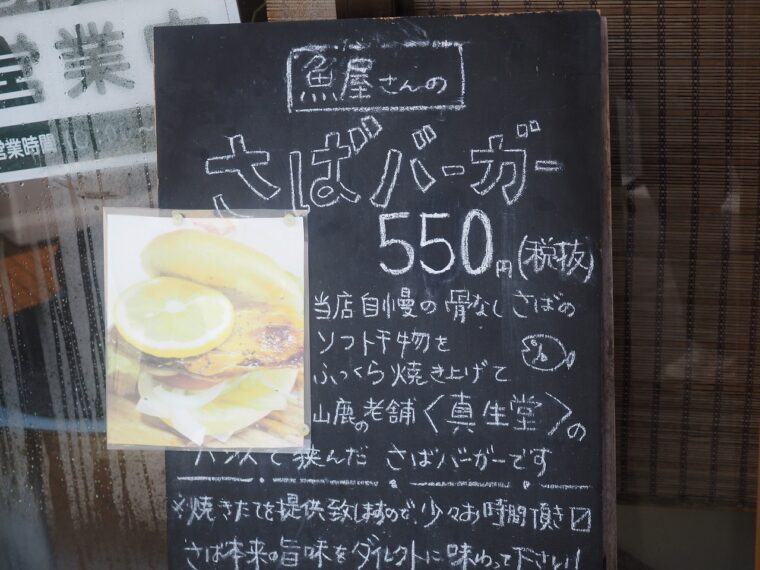 営業中
営業時間
魚屋さんの
さばバーガー
550円(税抜)
当店自慢の骨なしさばの
ソフト干物を
ふっくら焼き上げて
山鹿の老舗〈真生堂〉の
バンズで挟んだ さばバーガーです
※焼きたてを提供致しますので、少々お時間頂き〼
さば本来の旨味をダイレクトに味わって下さい!!